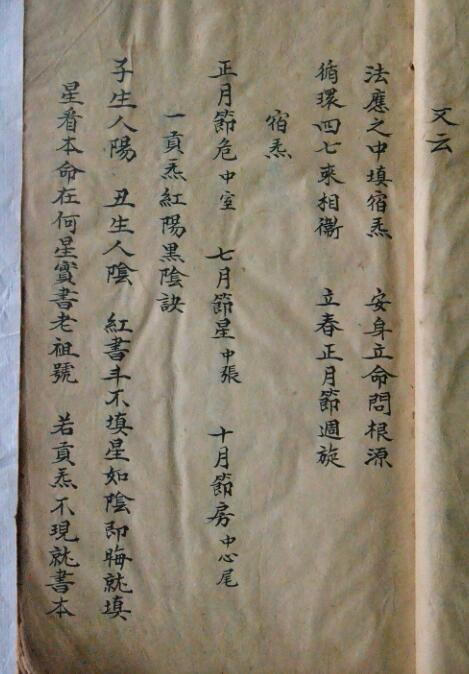 又云
法應之中填宿炁 安身立命問根源
循環四七來相衞 立春正月節週旋
宿炁
正月節危中室 七月節星中張 十月節房中心尾
一貢炁紅陽黑陰訣
子生人陽 丑生人陰 紅書斗不填星如陰即晦就填
星看本命在何星實書老祖號 若貢炁不現就書本